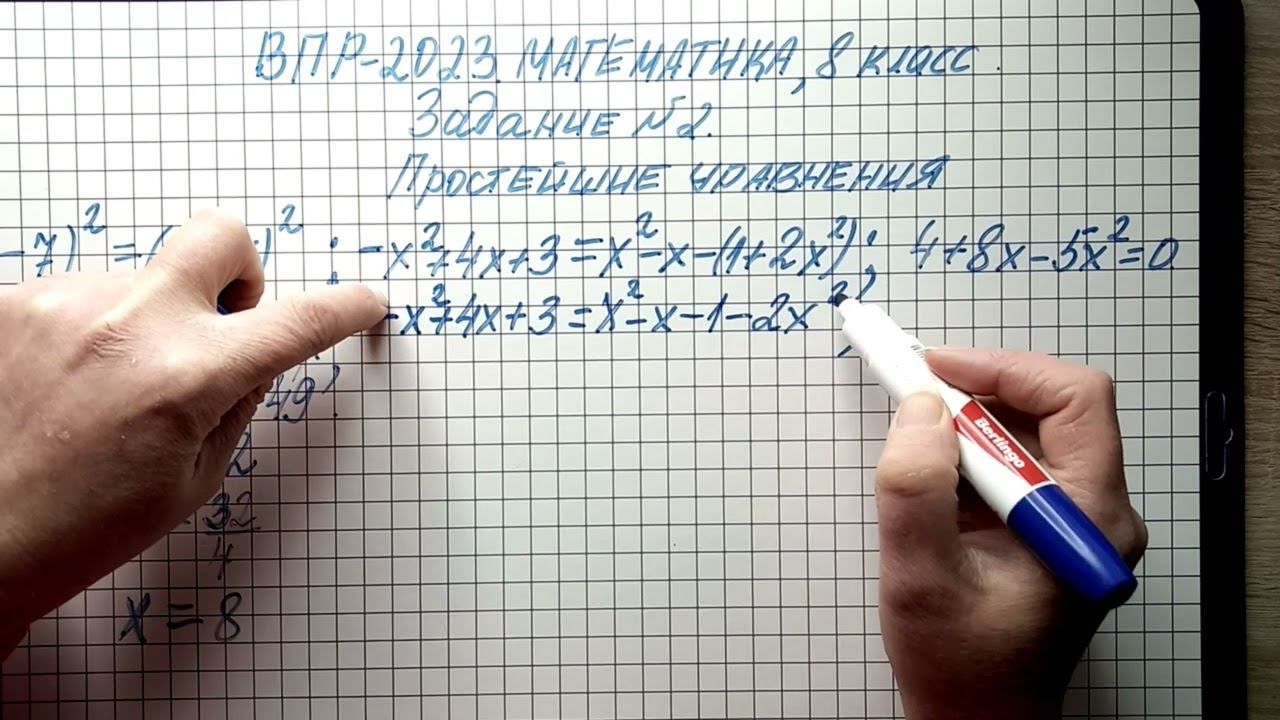 ВПР-2023. МАТЕМАТИКА, 8 класс.
Задание №2.
Простейшие уравнения
-7)² = ( )² ; -x²+4x+3=x²-x-(1+2x²); 4+8x-5x²=0
-x²+4x+3=x²-x-1-2x²
49
2
32
4
x = 8
Berlingo